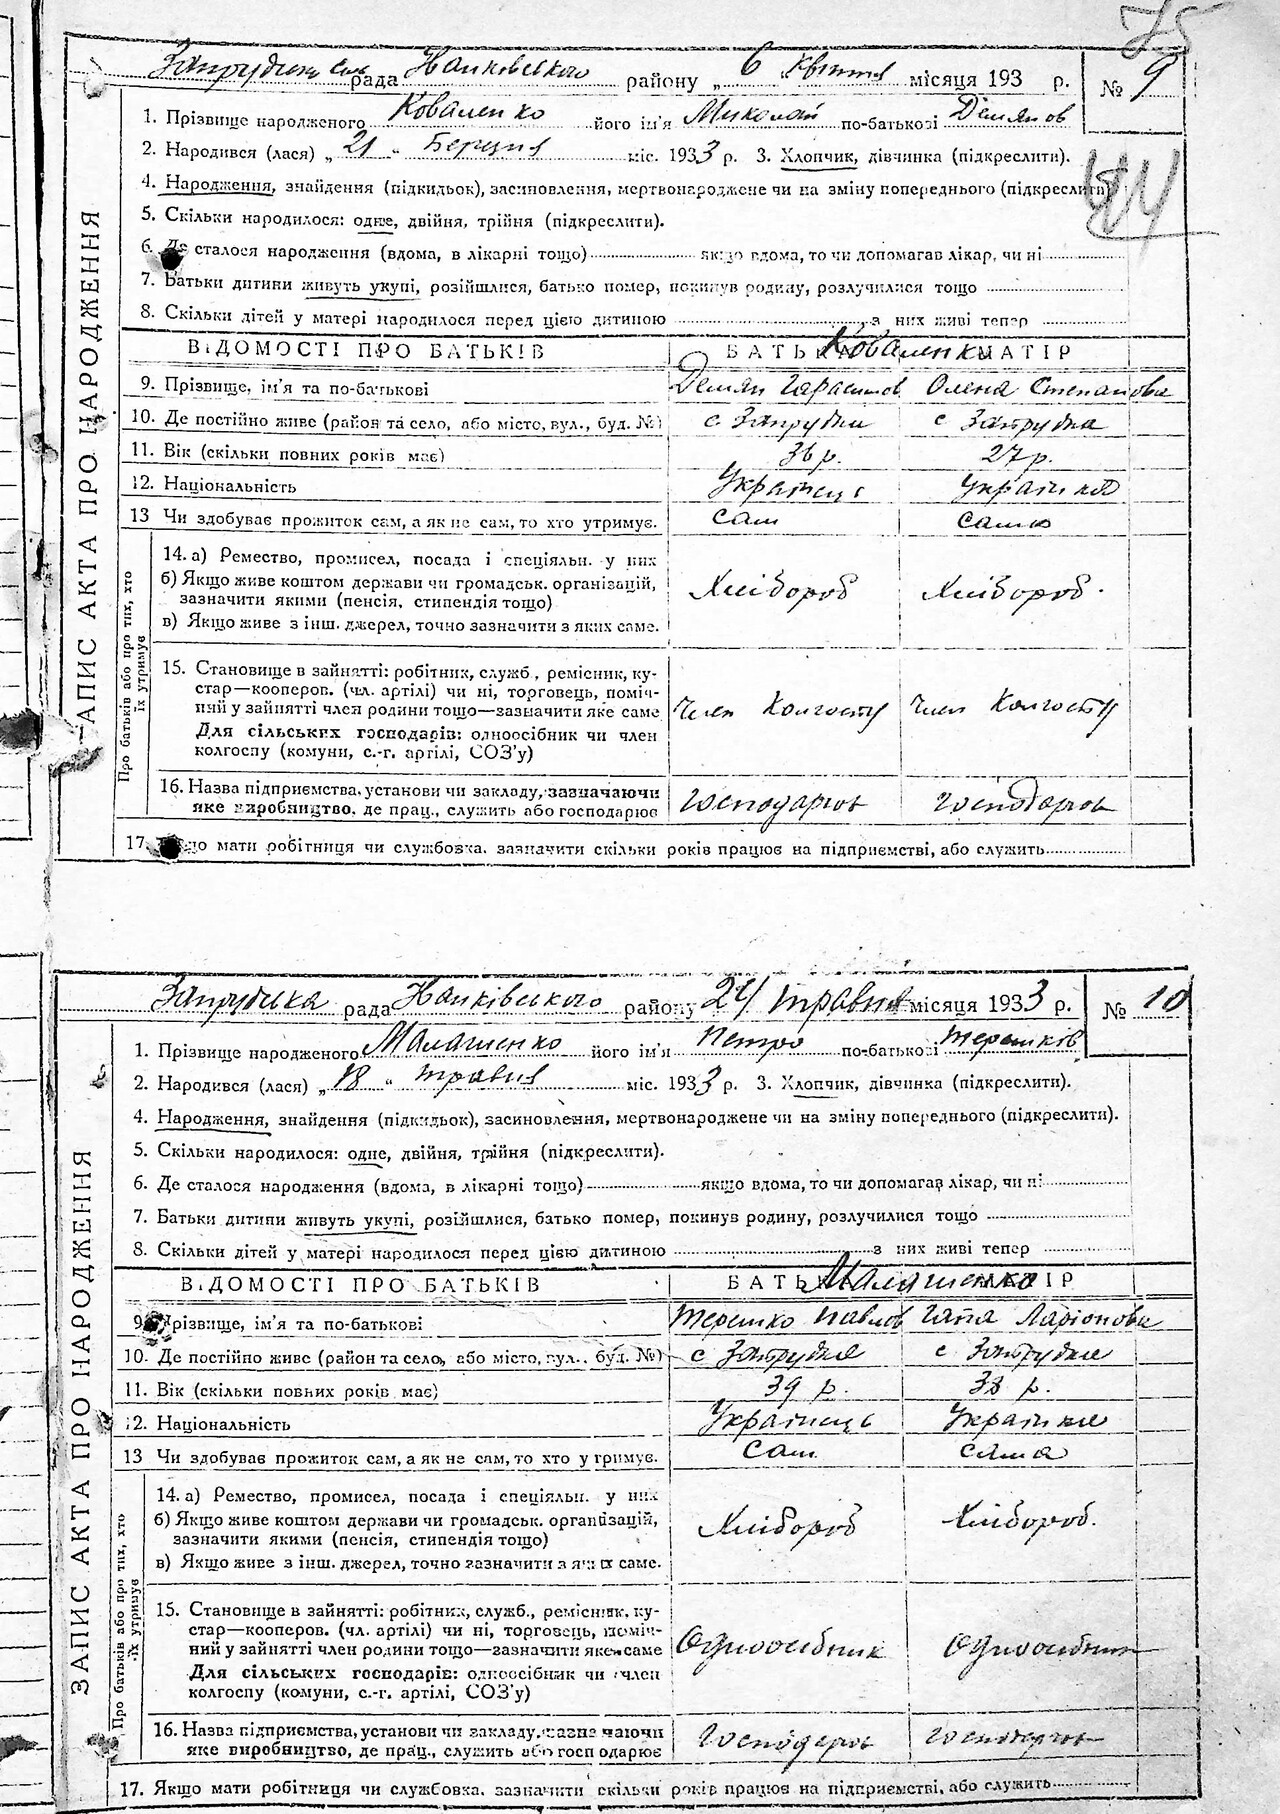 75
Запрудська сіль рада Наиківського району „ 6 квітня місяця 193 р. № 9
1. Прізвище народженого Коваленко його ім'я Миколай по-батькові Демянов
2. Народився (лася) „ 21 " Березня міс. 1933 р. 3. Хлопчик, дівчинка (підкреслити).
4. Народження, знайдення (підкидьок), засиновлення, мертвонароджене чи на зміну попереднього (підкреслити)
5. Скільки народилося: одне, двійня, трійня (підкреслити).
6. Де сталося народження (вдома, в лікарні тощо) якщо вдома, то чи допомагав лікар, чи ні
7. Батьки дитини живуть укупі, розійшлися, батько помер, покинув родину, розлучилися тощо
8. Скільки дітей у матері народилося перед цією дитиною з них живі тепер
ВІДОМОСТІ ПРО БАТЬКІВ БАТЬКО Коваленки МАТІР
9. Прізвище, ім'я та по-батькові Демян Гарасимов Олена Степанова
10. Де постійно живе (район та село, або місто, вул., буд. №) с Запрудка с Запрудка
11. Вік (скільки повних років має) 36 р. 27 р.
12. Національність Українець Українка
13 Чи здобуває прожиток сам, а як не сам, то хто утримує. сам сама
14. а) Ремество, промисел, посада і спеціяльн. у них
б) Якщо живе коштом держави чи громадськ. організацій,
зазначити якими (пенсія, стипендія тощо) Хлібороб Хлібороб.
в) Якщо живе з інш. джерел, точно зазначити з яких саме.
15. Становище в зайнятті: робітник, служб., ремісник, ку-
стар—кооперов. (чл. артілі) чи ні, торговець, поміч-
ний у зайнятті член родини тощо—зазначити яке саме Член Колгоспу Член Колгоспу
Для сільських господарів: одноосібник чи член
колгоспу (комуни, с.-г. артілі, СОЗ'у)
16. Назва підприємства, установи чи закладу, зазначаючи
яке виробництво, де прац., служить або господарює
17. Якщо мати робітниця чи службовка, зазначити скільки років працює на підприємстві, або служить
ЗАПИС АКТА ПРО НАРОДЖЕННЯ
Про батьків або про тих, хто
їх утримує
рада Наиківського району 24 травня місяця 1933 р. № 10
1. Прізвище народженого Малашенко його ім'я Петро по-батькові Терешків
2. Народився (лася) „ 18 " травня міс. 1933 р. 3. Хлопчик, дівчинка (підкреслити).
4. Народження, знайдення (підкидьок), засиновлення, мертвонароджене чи на зміну попереднього (підкреслити).
5. Скільки народилося: одне, двійня, трійня (підкреслити).
6. Де сталося народження (вдома, в лікарні тощо) якщо вдома, то чи допомагав лікар, чи ні
7. Батьки дитини живуть укупі, розійшлися, батько помер, покинув родину, розлучилися тощо
8. Скільки дітей у матері народилося перед цією дитиною з них живі тепер
ВІДОМОСТІ ПРО БАТЬКІВ БАТЬКО Малашенко МАТІР
9. Прізвище, ім'я та по-батькові Терешко Павлов Гапа Ларіонова
10. Де постійно живе (район та село, або місто, вул., буд. №) с Запрудка с Запрудка
11. Вік (скільки повних років має) 39 р. 38 р.
12. Національність Українець Українка
13 Чи здобуває прожиток сам, а як не сам, то хто утримує. сам. сама
14. а) Ремество, промисел, посада і спеціяльн. у них
б) Якщо живе коштом держави чи громадськ. організацій,
зазначити якими (пенсія, стипендія тощо) Хлібороб Хлібороб.
в) Якщо живе з інш. джерел, точно зазначити з яких саме.
15. Становище в зайнятті: робітник, служб., ремісник, ку-
стар—кооперов. (чл. артілі) чи ні, торговець, поміч-
ний у зайнятті член родини тощо—зазначити яке саме Одноосібник Одноосібник
Для сільських господарів: одноосібник чи член
колгоспу (комуни, с.-г. артілі, СОЗ'у)
16. Назва підприємства, установи чи закладу, зазначаючи
яке виробництво, де прац., служить або господарює
17. Якщо мати робітниця чи службовка, зазначити скільки років працює на підприємстві, або служить
ЗАПИС АКТА ПРО НАРОДЖЕННЯ
Про батьків або про тих, хто
їх утримує